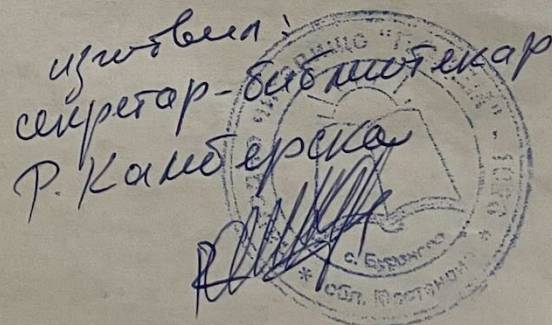 изготвил:
секретар-библиотекар
Р. Камберска
ЧИТАЛИЩЕ
с.
* обл. *